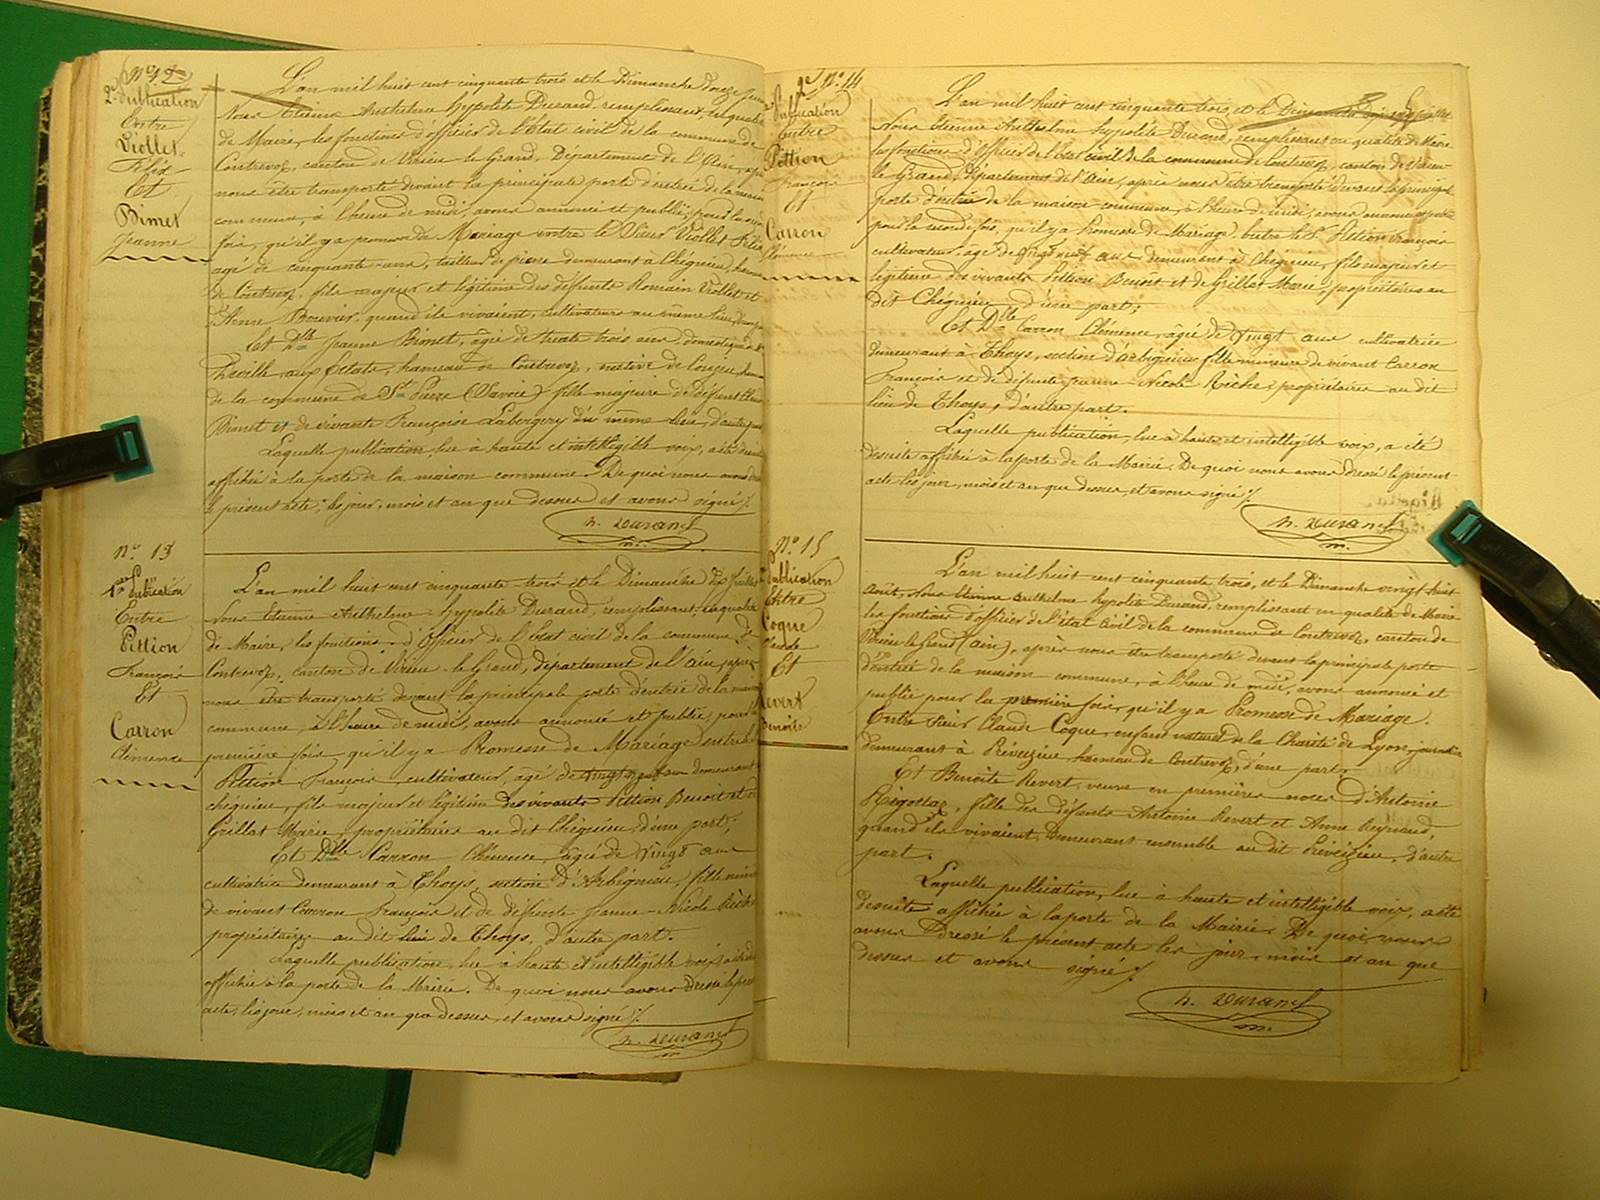 N° 12
2e Publication
Entre
Viollet
Félix
Et
Bimet
Jeanne
L'an mil huit cent cinquante trois et le Dimanche douze juin
Nous Etienne Anthelme hypolite Durand, remplissant en qualité
de Maire, les fonctions d'officier de l'Etat civil de la commune de
Contrevoz, canton de Virieu le Grand, Département de l'Ain, après
nous être transporté devant la principale porte d'entrée de la maison
commune, à l'heure de midi, avons annoncé et publié, pour la
fois, qu'il y a promesse de Mariage entre le Sieur Viollet Félix
agé de cinquante ans, tailleur de pierre demeurant à Chégnieu, hameau
de Contrevoz, fils majeur et légitime des défunts Romain Viollet et
d'Anne Bouvier, quand ils vivaient, cultivateurs au même lieu, d'une part
Et Dlle Jeanne Bimet, agée de trente trois ans, domestique
aux hameau de Contrevoz, native de
de la commune de St Pierre (Savoie) fille majeure de défunt
Bimet et de vivante Françoise Labeigery du même lieu, d'autre part
Laquelle publication, lue à haute et intelligible voix, a été desuite
affichée à la porte de la maison commune. De quoi nous avons dressé
le présent acte, les jour, mois et an que dessus et avons signé ./.
h. Durand
N° 13
1ere Publication
Entre
Pittion
François
Et
Carron
Clémence
L'an mil huit cent cinquante trois et le Dimanche dix juillet
Nous Etienne Anthelme hypolite Durand, remplissant en qualité
de Maire, les fonctions d'Officier de l'Etat civil de la commune de
Contrevoz, canton de Virieu le Grand, département de l'Ain, après
nous être transporté devant la principale porte d'entrée de la maison
commune, à l'heure de midi, avons annoncé et publié, pour la
première fois, qu'il y a Promesse de Mariage entre le
Pittion François, cultivateur, agé de vingt neuf ans demeurant à
chégnieu, fils majeur et légitime des vivants Pittion Benoit et de
Grillat Marie, propriétaires au dit Chégnieu, d'une part;
Et Dlle Carron Clémence, agée de vingt ans
cultivatrice demeurant à Thoys, section d'Arbignieu, fille mineure
de vivant Carron François et de défunte Jeanne-Nicole Riche
propriétaires au dit lieu de Thoys, d'autre part.
Laquelle publication, lue à haute et intelligible voix, a été desuite
affichée à la porte de la Mairie. De quoi nous avons dressé le présent
acte, les jour, mois et an que dessus, et avons signé ./.
h. Durand
2e N° 14
Publication
Entre
Pittion
François
Et
Carron
Clémence
L'an mil huit cent cinquante trois, et le Dimanche dix sept juillet
Nous Etienne Anthelme hypolite Durand, remplissant en qualité de Maire
les fonctions d'officier de l'Etat civil de la commune de Contrevoz, canton de Virieu
le Grand, département de l'Ain, après nous être transporté devant la principale
porte d'entrée de la maison commune, à l'heure de midi, avons annoncé et publié
pour la seconde fois, qu'il y a Promesse de Mariage, entre le Sr Pittion François
cultivateur, agé de vingt neuf ans demeurant à Chégnieu, fils majeur et
légitime des vivants Pittion Benoit et de Grillat Marie, propriétaires au
dit Chégnieu, d'une part;
Et Dlle Carron Clémence, agée de vingt ans cultivatrice
demeurant à Thoys, section d'Arbignieu, fille mineure de vivant Carron
François et de défunte Jeanne-Nicole Riche, propriétaires au dit
lieu de Thoys, d'autre part.
Laquelle publication, lue à haute et intelligible voix, a été
desuite affichée à la porte de la Mairie. De quoi nous avons dressé le présent
acte les jour, mois et an que dessus, et avons signé ./.
h. Durand
N° 15
Publication
Entre
Coque
Claude
Et
Revert
Benoite
L'an mil huit cent cinquante trois, et le Dimanche vingt huit
Août, Nous Etienne Anthelme hypolite Durand, remplissant en qualité de Maire
les fonctions d'officier de l'état civil de la commune de Contrevoz, canton de
Virieu le Grand (Ain), après nous être transporté devant la principale porte
d'entrée de la maison commune, à l'heure de midi, avons annoncé et
publié pour la première fois, qu'il y a Promesse de Mariage.
Entre Sieur Claude Coque, enfant naturel de la Charité de Lyon, journalier
demeurant à Préveizieu, hameau de Contrevoz, d'une part;
Et Benoite Revert, veuve en premières noces d'Antoine
Rigottaz, fille des défunts Antoine Revert et Anne Reynaud,
quand ils vivaient, demeurant ensemble au dit Préveizieu, d'autre
part.
Laquelle publication, lue à haute et intelligible voix, a été
desuite affichée à la porte de la Mairie. De quoi nous
avons dressé le présent acte les jour, mois et an que
dessus et avons signé ./.
h. Durand